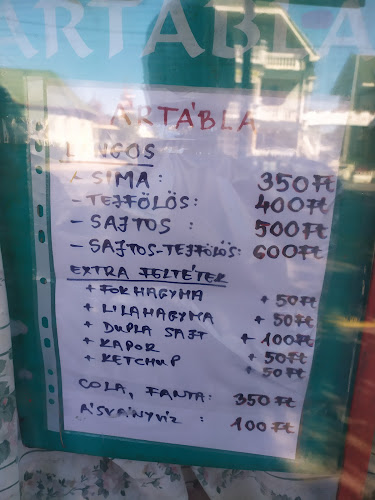 ÁRTÁBLA
ÁRTÁBLA
LÁNGOS
- SIMA: 350 Ft
- TEJFÖLÖS: 400 Ft
- SAJTOS : 500 Ft
- SAJTOS-TEJFÖLÖS: 600 Ft
EXTRA FELTÉTEK
+ FOKHAGYMA + 50 Ft
+ LILAHAGYMA + 50 Ft
+ DUPLA SAJT + 100 Ft
+ KAPOR + 50 Ft
+ KETCHUP + 50 Ft
COLA, FANTA: 350 Ft
ÁSVÁNYVÍZ : 100 Ft